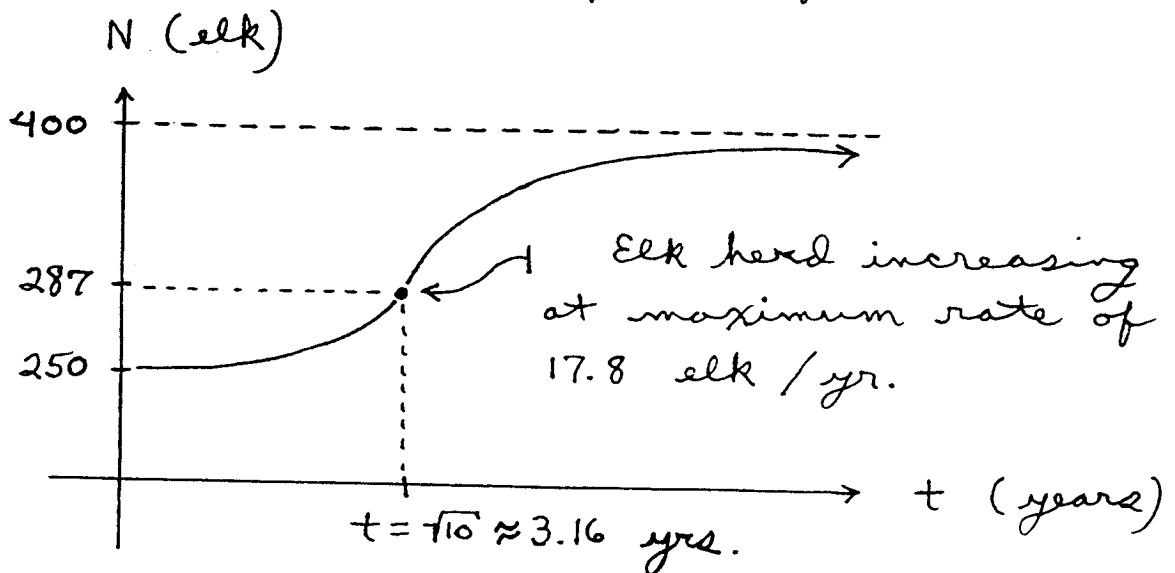 N (elk)
400
287
Elk herd increasing
at maximum rate of
17.8 elk / yr.
250
t (years)
t = √10 ≈ 3.16 yrs.